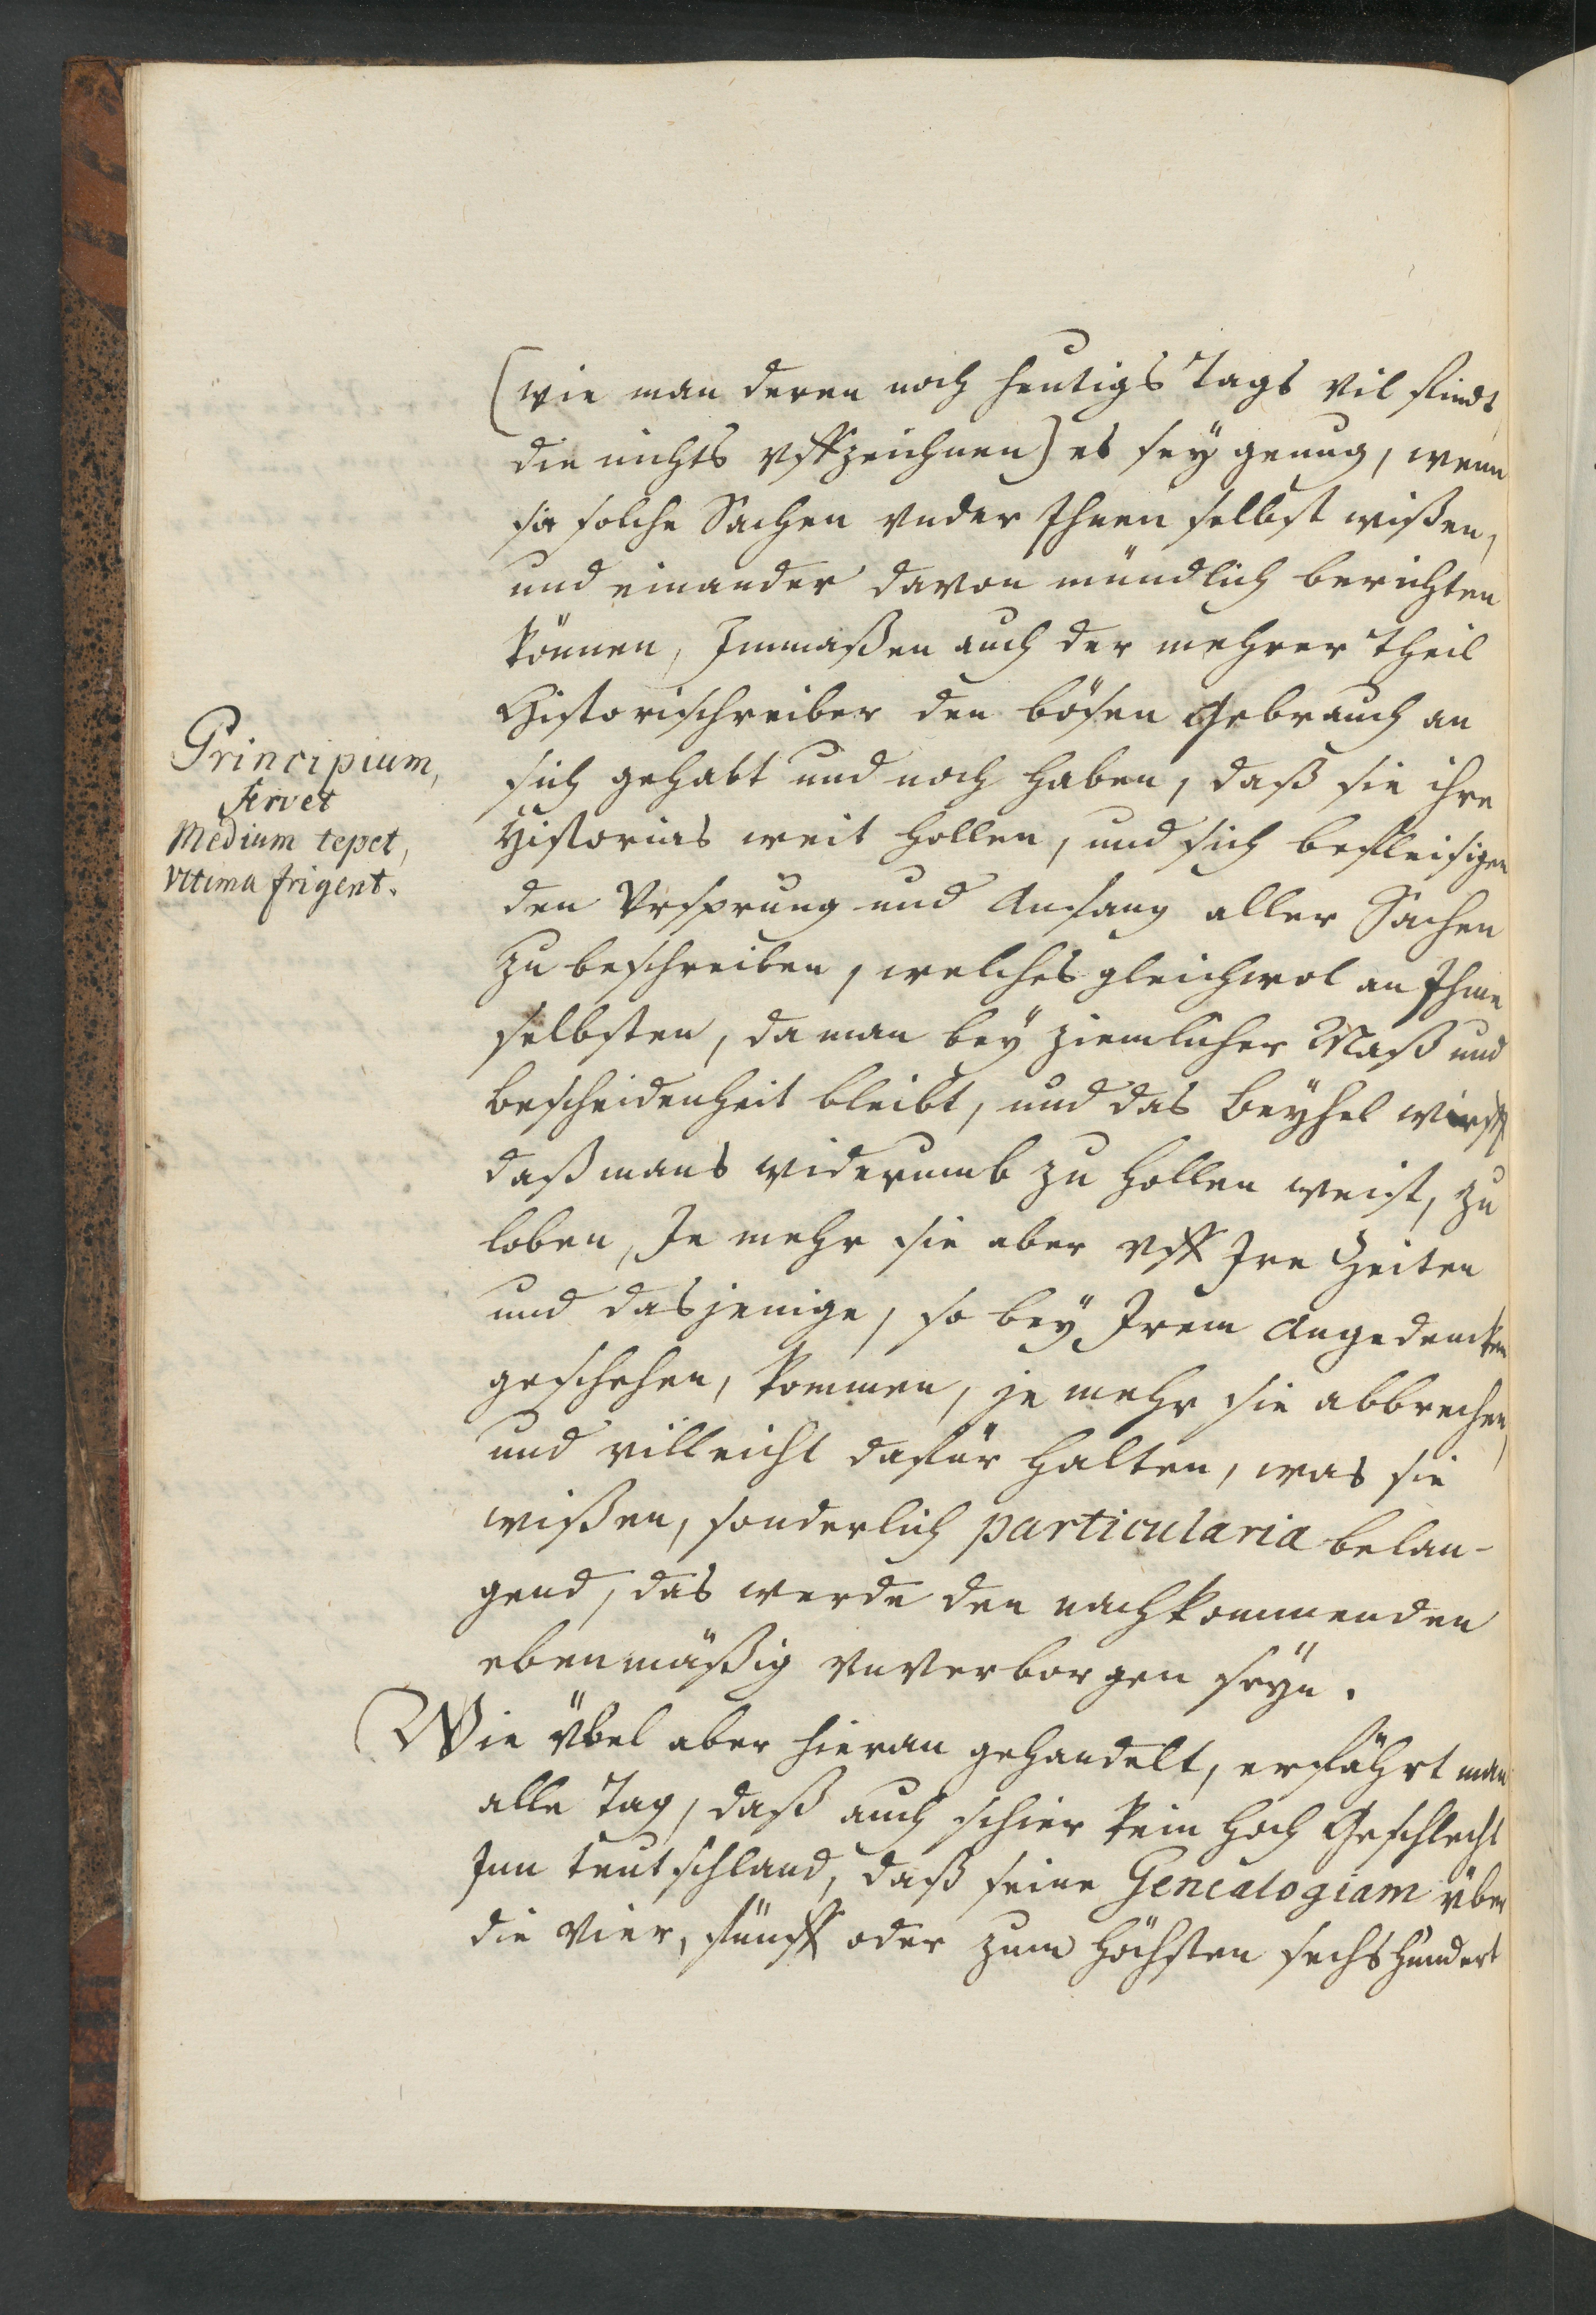 (wie man deren noch heutigs Tags vil findt
die nichts vffzeichnen) es seÿ genug, wenn
sie solche Sachen vnder Ihnen selbst wißen,
und einander davon mündlich berichten
können, Immaßen auch der mehrer Theil
Historischreiber den bösen Gebrauch an
sich gehabt und noch haben, daß sie ihre
Historias weit hollen, und sich befleisigen
den Vrsprung und Anfang aller Sachen
zu beschreiben, welches gleichwol an Ihme
selbsten, da man beÿ ziemlicher Maß und
bescheidenheit bleibt, und das Beÿhel wirfft
daß mans widerumb zu hollen weist, zu
loben, Je mehr sie aber vff Ire Zeiten
und dasjenige, so beÿ Irem Angedencken
geschehen, kommen, je mehr sie abbrechen,
und villeicht dafür halten, was sie
wißen, sonderlich particularia belan-
gend, das werde den nachkommenden
ebenmäßig vnverborgen seÿn.
Wie übel aber hieran gehandelt, erfährt man
alle Tag, daß auch schier kein hoch Geschlecht
Inn Teutschland, daß seine Genealogiam über
die vier, fünff oder zum höchsten sechshundert
Principium,
fervet
Medium tepet,
Vltima frigent.